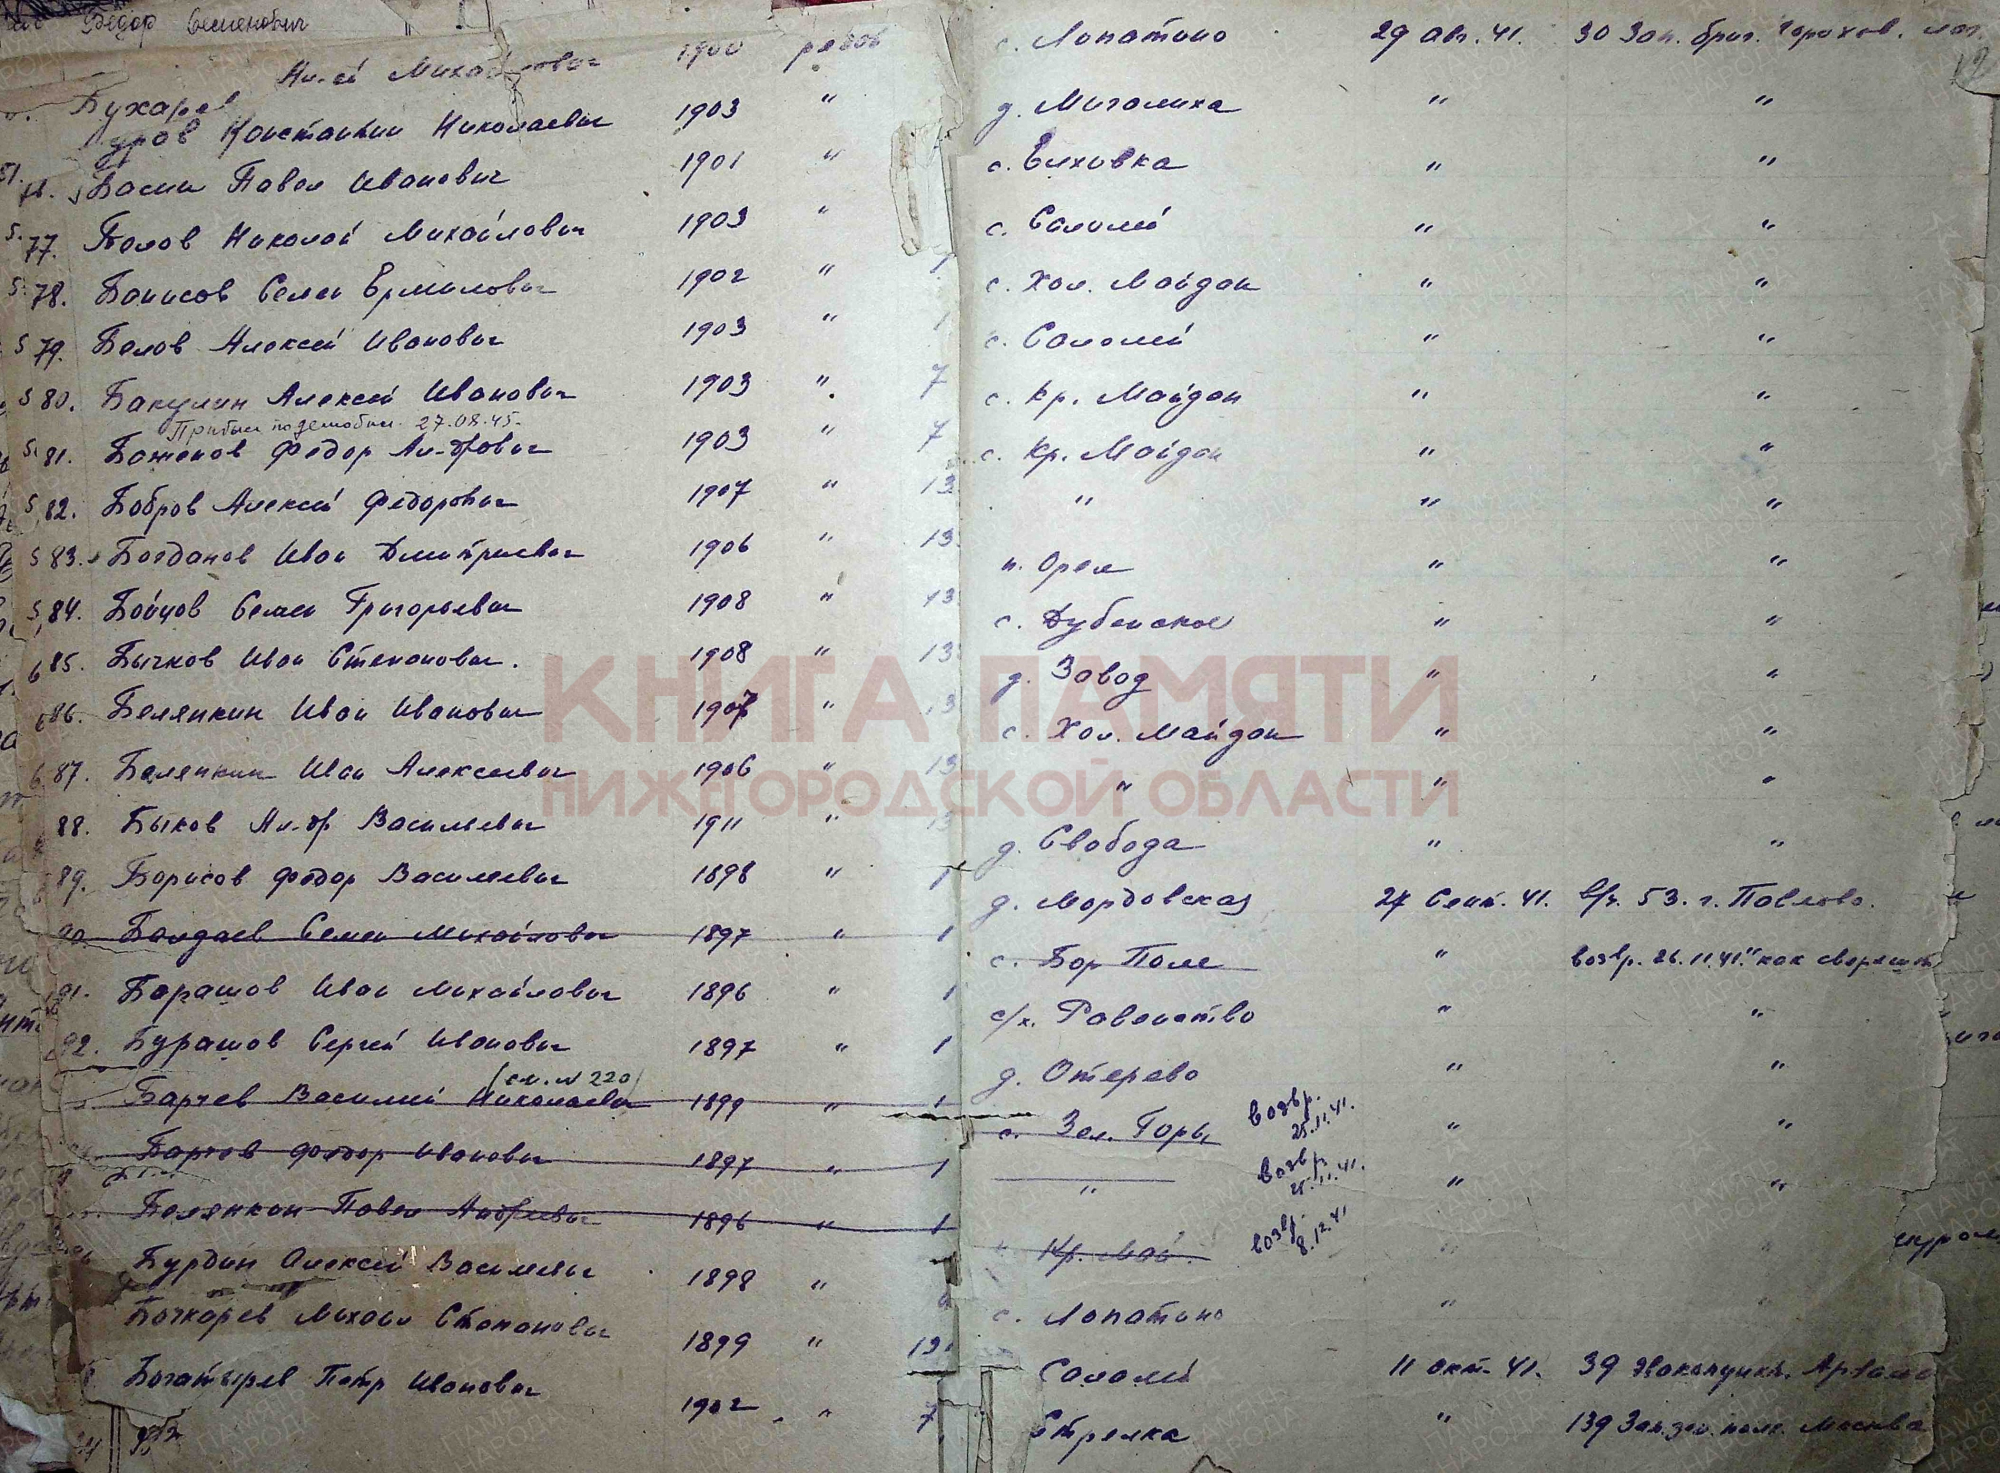 Федор Семенович
Михайлович 1900 рядов с. Лопатино 29 ав. 41. 30 Зап. бриг. Горохов. лаг.
Бухарев
Константин Николаевич 1903 " д. Миголиха " "
76. Басин Павел Иванович 1901 " с. Елховка " "
77. Белов Николай Михайлович 1903 " с. Салалей " "
78. Борисов Семен Ермилович 1902 " с. Хол. Майдан " "
79. Белов Алексей Иванович 1903 " с. Салалей " "
80. Бакулин Алексей Иванович 1903 " 7 с. Кр. Майдан " "
Прибыл по демобил. 27.08.45.
81. Баженов Федор Ал-дрович 1903 " 7 с. Кр. Майдан " "
82. Бобров Алексей Федорович 1907 " 13 " " "
83. Богданов Иван Дмитриевич 1906 " 13 п. Орел " "
84. Бойцов Семен Григорьевич 1908 " 13 с. Дубенское " "
85. Бычков Иван Степанович. 1908 " 13 д. Завод " "
86. Белянкин Иван Иванович 1907 " 13 с. Хол. Майдан " "
87. Белянкин Иван Алексеевич 1906 " 13 " " "
88. Быков Ал-др Васильевич 1911 " 13 д. Свобода " "
89. Борисов Федор Васильевич 1898 " 1 д. Мордовская 27 Сент. 41. в/ч. 53. г. Павлово.
90. Балдаев Семен Михайлович 1897 " 1 с. Бор Поле " возвр. 26.11.41. как
91. Барашов Иван Михайлович 1896 " 1 с/х. Равенство " "
92. Бурашов Сергей Иванович 1897 " 1 д. Отерево " "
(см. N 220)
Барчев Василий Николаевич 1899 " 1 с. Зел. Горы возвр. 25.11.41. " "
Федор Иванович 1897 " 1 " возвр. 25.11.41. " "
Белянкин Павел Андреевич 1896 " 1 Кр. Май. возвр. 8.12.41 " "
Бурдин Алексей Васильевич 1898 " с. Лопатино " "
Бочкарев Михаил Степанович 1899 " 13 Салалей 11 окт. 41. 39
Богатырев Петр Иванович 1902 " 7 Стрелка " 139 Зап. полк. Москва
КНИГА ПАМЯТИ
НИЖЕГОРОДСКОЙ ОБЛАСТИ